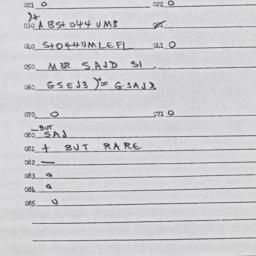 021 0 022 0
030 A BSTO44UMB
040 STO44UMLEFL 041 0
050 MBR SAJD SI .
060 GSEJ3 )= GSAJD.
070 0 071 0
BUT
080 SAJ
081 + BUT RARE
082 —
083 0
084 0
085 0